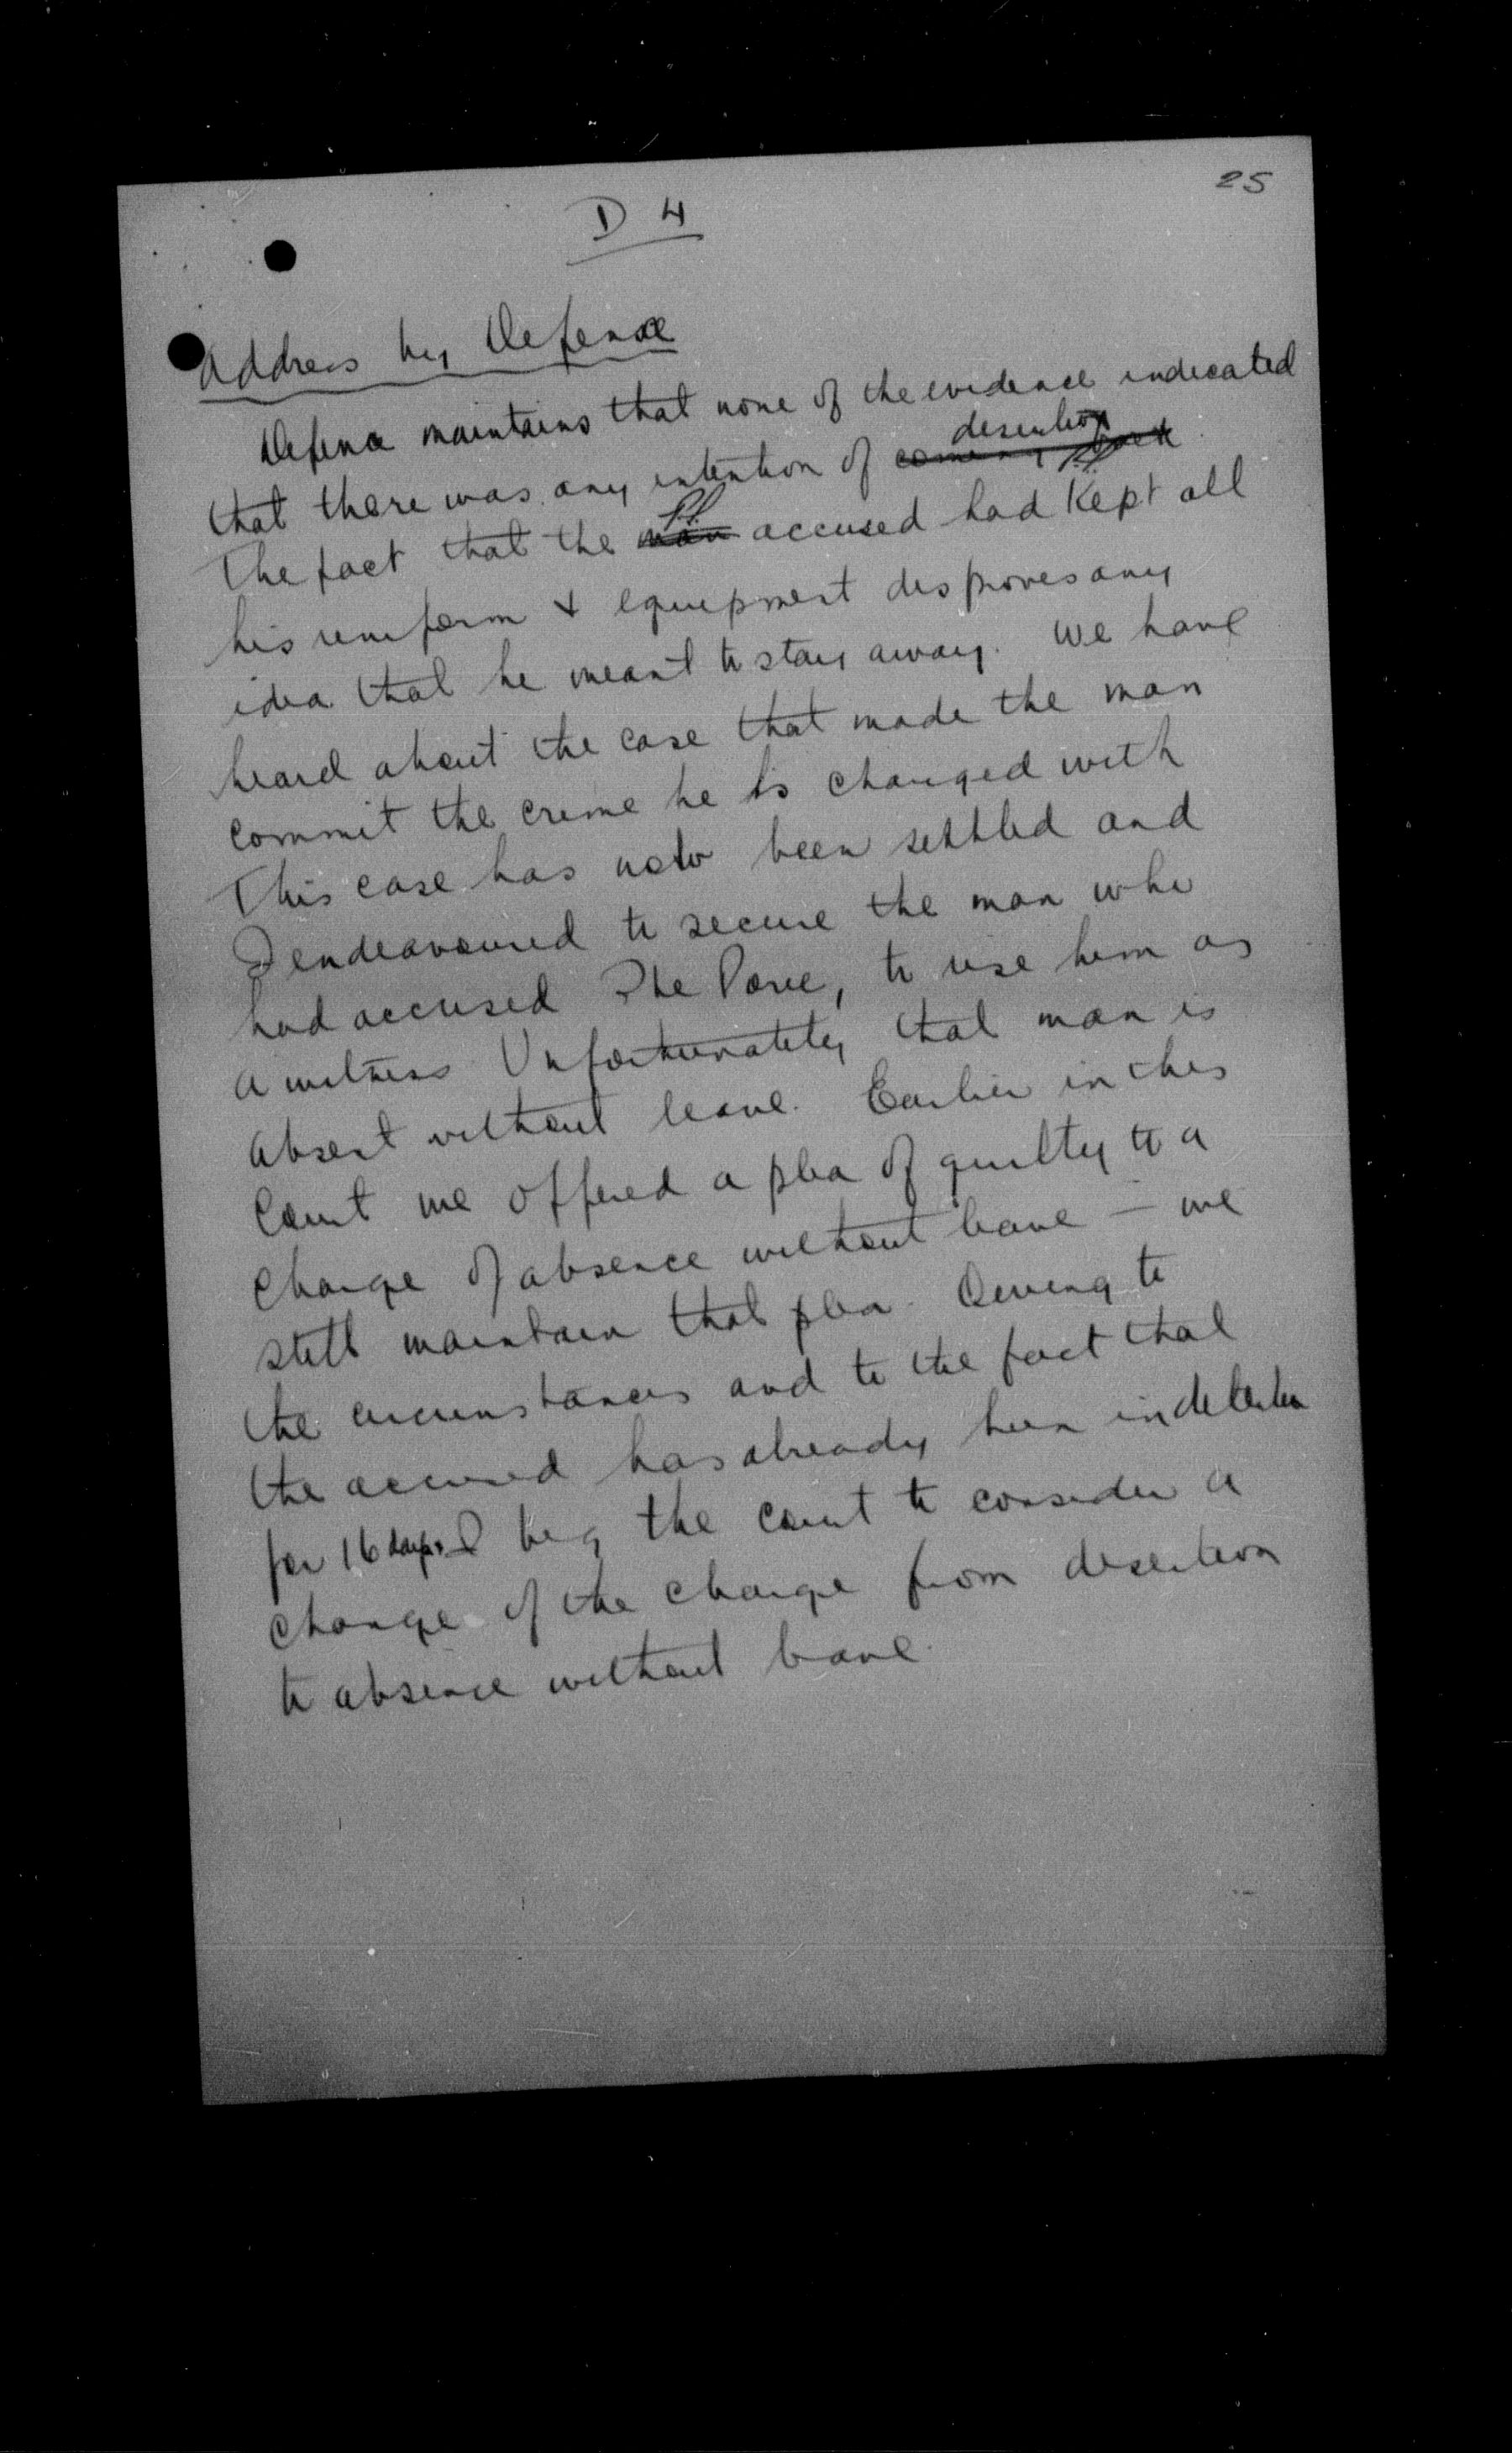 25
D 4
Address by Defence
Defence maintains that none of the evidence indicated
desertion
that there was any intention of coming back
The fact that the man accused had kept all
his uniform & equipment disproves any
idea that he meant to stay away. We have
heard about the case that made the man
commit the crime he is charged with
This case has now been settled and
I endeavoured to secure the man who
had accused Pte Pare, to use him as
a witness Unfortunately that man is
absent without leave. Earlier in this
Court we offered a plea of guilty to a
charge of absence without leave – we
still maintain that plea. Owing to
the circumstances and to the fact that
the accused has already been in detention
for 16 days. I beg the court to consider a
change of the charge from desertion
to absence without leave.